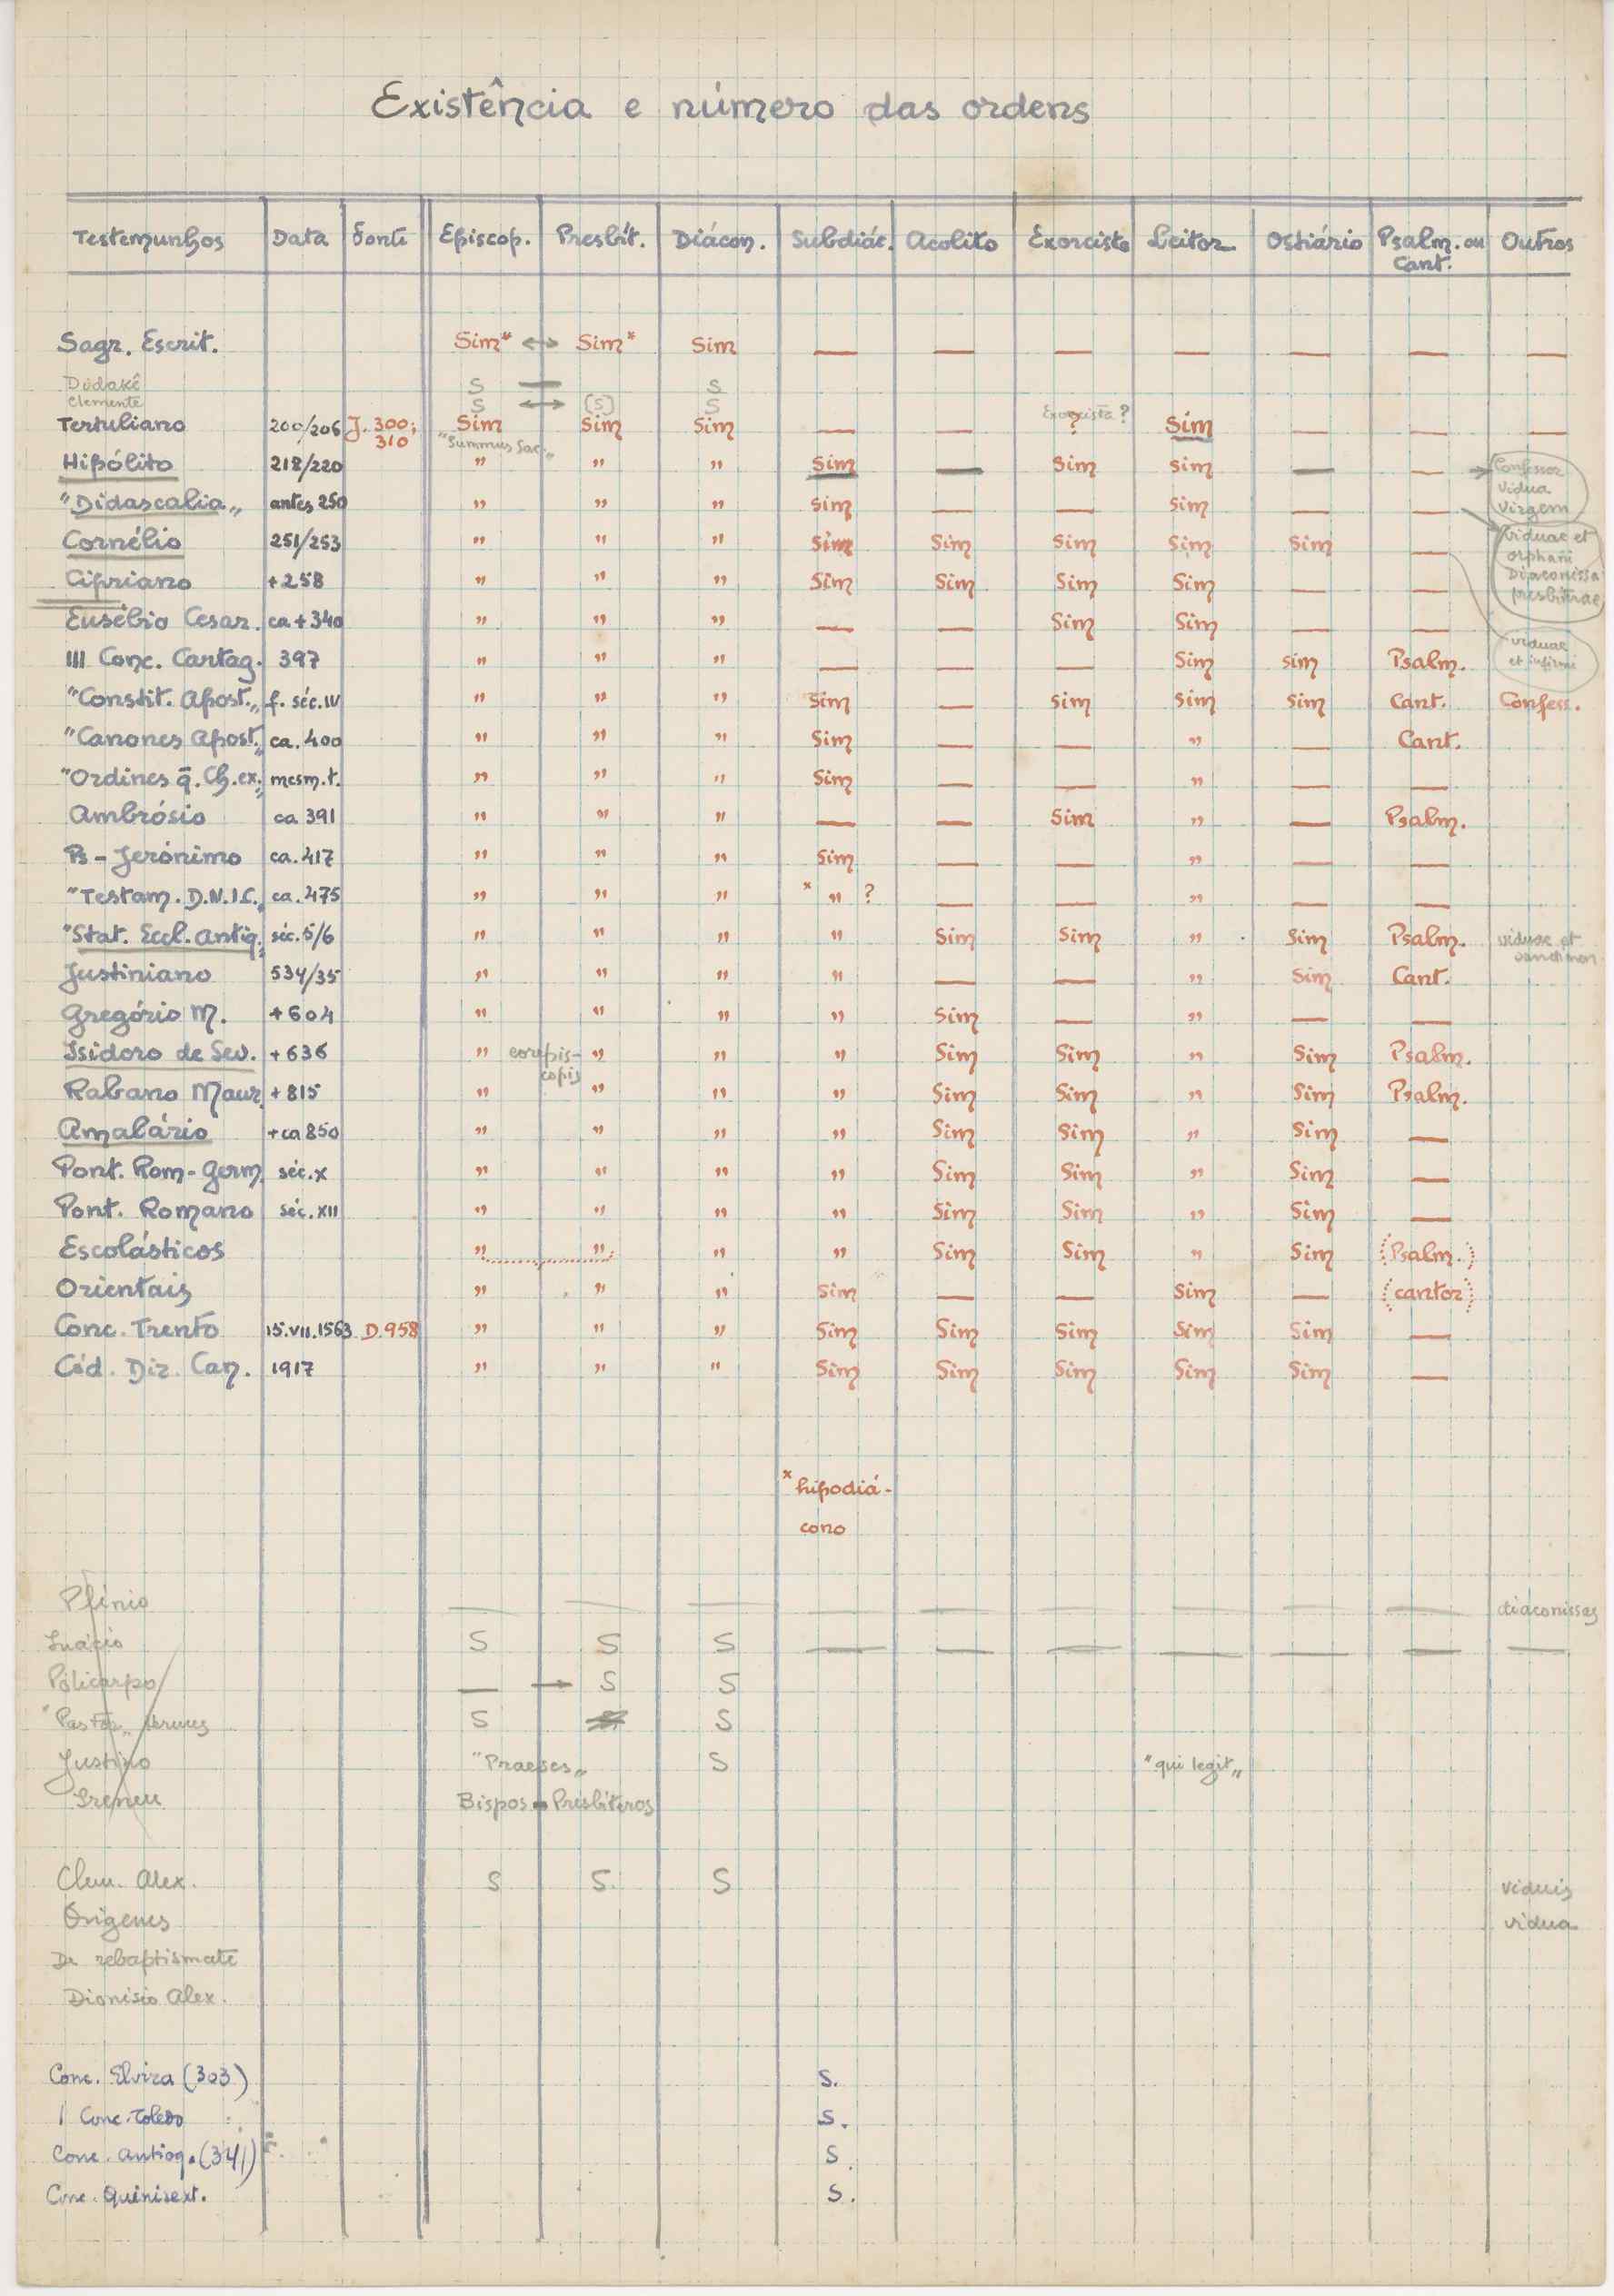 Existência e número das ordens
Testemunhos Data Fonte Episcop. Presbít. Diácon. Subdiác. Acolito Exorcista Leitor Ostiário Psalm. ou Cant. Outros
Sagr. Escrit. Sim* ↔ Sim* Sim — — — — — — —
Didakê S — S
Clemente S ↔ (S) S
Tertuliano 200/206 J. 300; 310 Sim "Summus Sac." Sim Sim — — Exorcista? ? Sim — — —
Hipólito 218/220 " " " Sim — Sim Sim — — → Confessor Vidua Virgem
"Didascalia„ antes 250 " " " Sim — — Sim — — Viduae et orphani Diaconissa presbiterae
Cornélio 251/253 " " " Sim Sim Sim Sim Sim — viduae et infirmi
Cipriano +258 " " " Sim Sim Sim Sim — —
Eusébio Cesar. ca +340 " " " — — Sim Sim — —
III Conc. Cartag. 397 " " " — — — Sim Sim Psalm.
"Constit. Apost.„ f. séc. IV " " " Sim — Sim Sim Sim Cant. Confess.
"Canones Apost.„ ca. 400 " " " Sim — — " — Cant.
"Ordines q̄. Ch. ex.„ mesm. t. " " " Sim — — " — —
Ambrósio ca 391 " " " — — Sim " — Psalm.
Ps-Jerónimo ca. 417 " " " Sim — — " — —
"Testam. D.N.I.C.„ ca. 475 " " " × " ? — — " — —
"Stat. Eccl. Antiq.„ séc. 5/6 " " " " Sim Sim " Sim Psalm. viduae et
Justiniano 534/35 " " " " — — " Sim Cant.
Gregório M. +604 " " " " Sim — " — —
Isidoro de Sev. +636 " corepis-copis " " " Sim Sim " Sim Psalm.
Rabano Maur. +815 " " " " Sim Sim " Sim Psalm.
Amalário +ca 850 " " " " Sim Sim " Sim —
Pont. Rom-Germ. séc. X " " " " Sim Sim " Sim —
Pont. Romano séc. XII " " " " Sim Sim " Sim —
Escolásticos " " " " Sim Sim " Sim (Psalm.)
Orientais " " " Sim — — Sim — (cantor)
Conc. Trento 15.VII.1563 D.958 " " " Sim Sim Sim Sim Sim —
Cód. Dir. Can. 1917 " " " Sim Sim Sim Sim Sim —
× hipodiá-
cono
Plínio — — — — — — — — diaconissas
Inácio S S S — — — — — — —
Policarpo — → S S
"Pastor„ Hermes S S
Justino "Praeses„ S "qui legit„
Ireneu Bispos = Presbíteros
Clem. Alex. S S. S viduis
Orígenes vidua
De rebaptismate
Dionisio Alex.
Conc. Elvira (303) S.
I Conc. Toledo S.
Conc. Antioq. (341) S.
Conc. Quinisext. S.